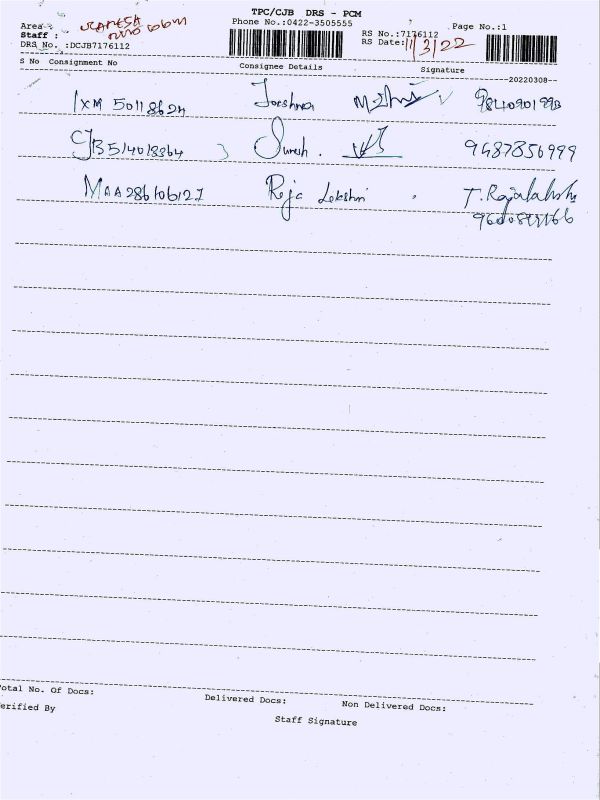 TPC/CJB DRS - PCM
Phone No.:0422-3505555
Area
Staff :
RAMESH
DRS No. :DCJB7176112
RS No.:7176112 Page No.:1
RS Date: 11/3/22
S No Consignment No Consignee Details Signature
20220308
IXM 50118624
CJB514018364 Suresh .
9487850999
MAA286106127 Raja Lakshmi T. Rajalakshmi
Total No. Of Docs: Delivered Docs: Non Delivered Docs:
erified By Staff Signature